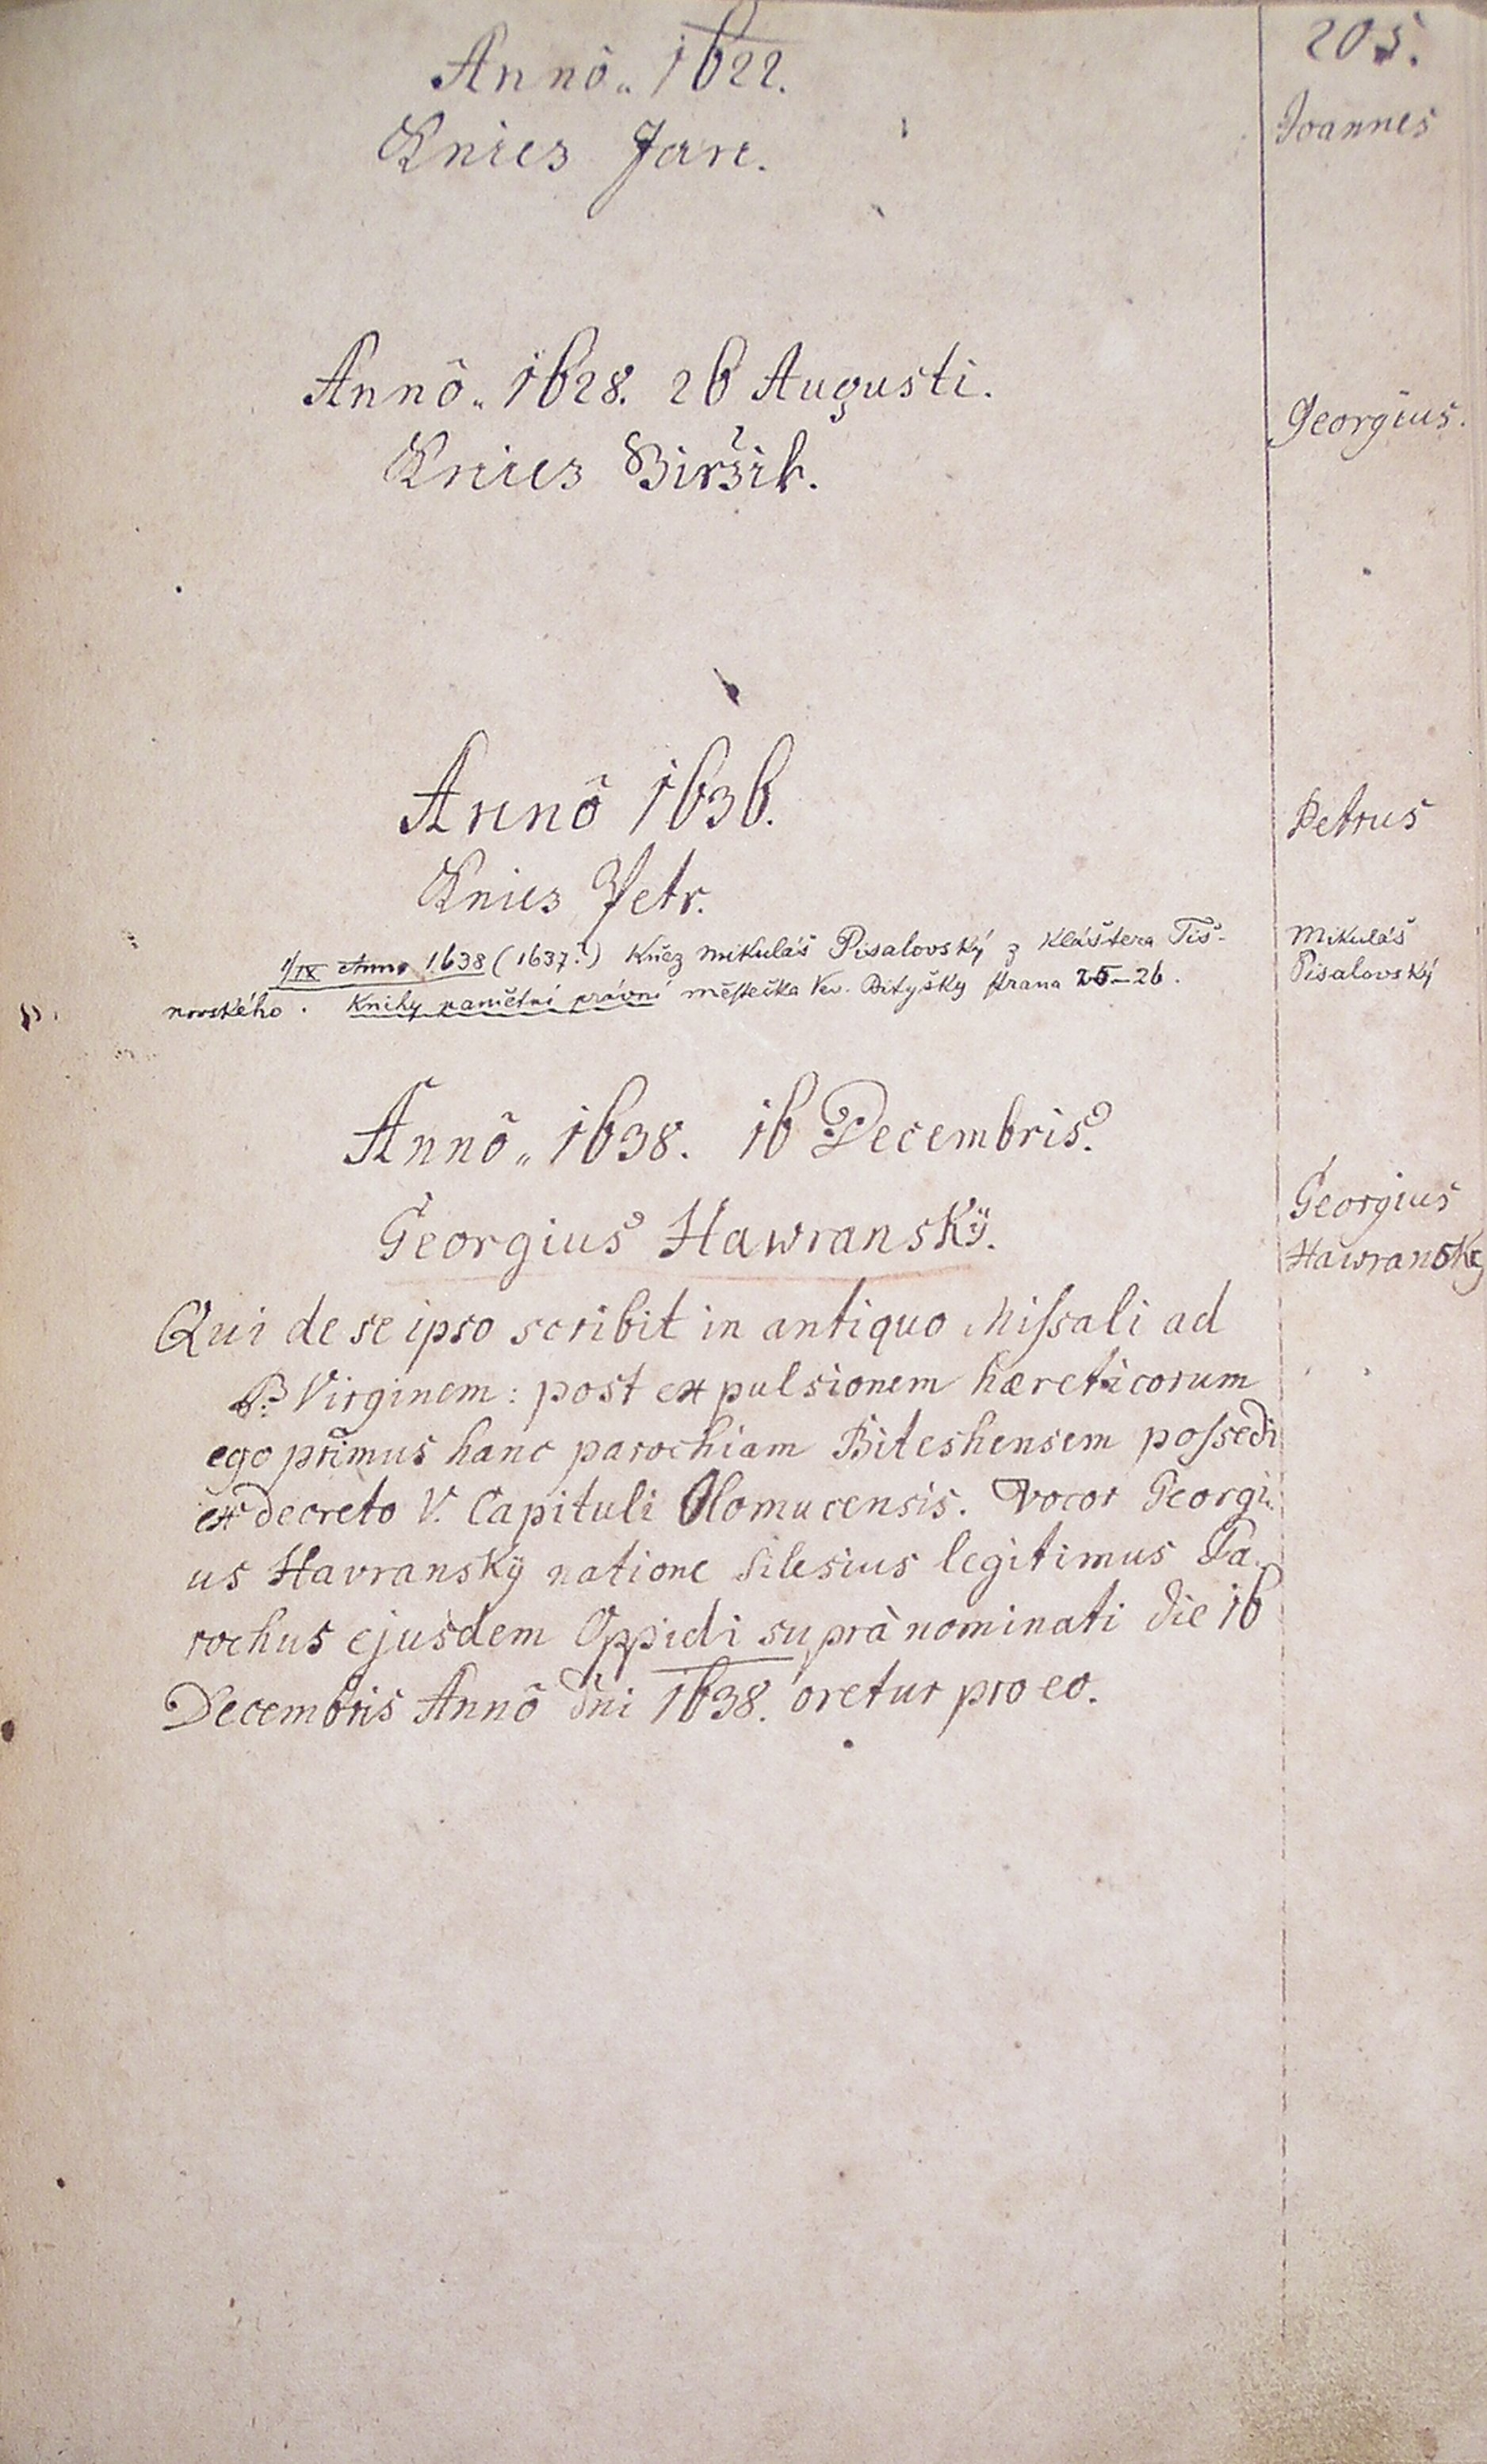 205.
Annô„ 1622.
Joannes
Kniez Jan.
Annô„ 1628. 26 Augusti.
Georgius.
Kniez Girzik.
Annô 1636.
Petrus
Kniez Petr.
1/IX Anno 1638 (1637?) Kněz Mikuláš Pisalovský z kláštera Tiš-
Mikuláš
novského. Knihy pamětní právní městečka Vev. Bityšky strana 25–26.
Pisalovský
Annô„ 1638. 16 Decembris.
Georgius
Georgius Hawranskÿ.
Hawransky
Qui de se ipso scribit in antiquo Missali ad
B: Virginem: post expulsionem hæreticorum
ego primus hanc parochiam Biteshensem possedi
ex decreto V. Capituli Olomucensis. Vocor Georgi-
us Havranskÿ natione Silesius legitimus Pa-
rochus ejusdem Oppidi suprà nominati die 16
Decembris Annô Dni 1638. oretur pro eo.